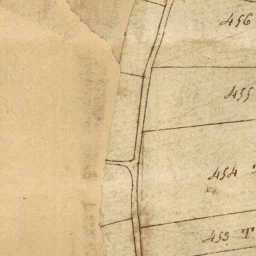 456
455
454
453